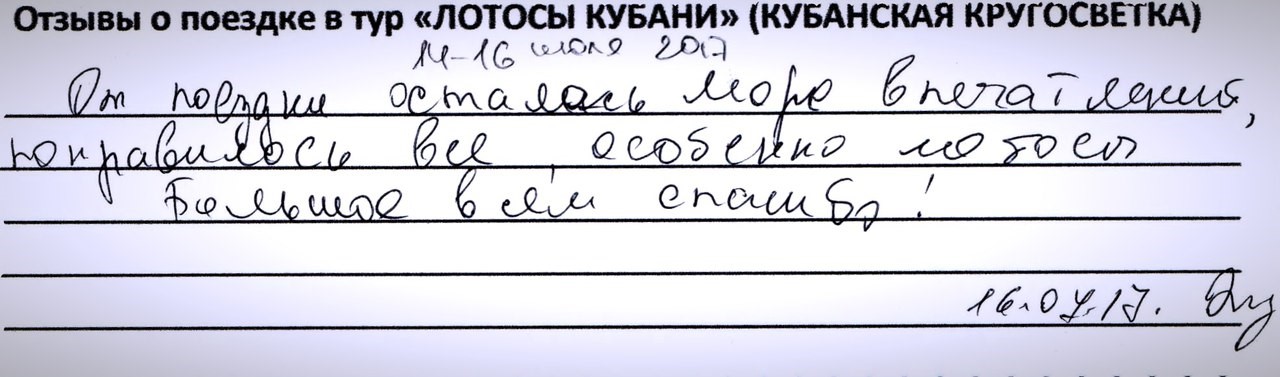 Отзывы о поездке в тур «ЛОТОСЫ КУБАНИ» (КУБАНСКАЯ КРУГОСВЕТКА)
14-16 июля 2017
От поездки осталось море впечатлений,
понравилось все, особенно лотосы
Большое всем спасибо!
16.07.17.